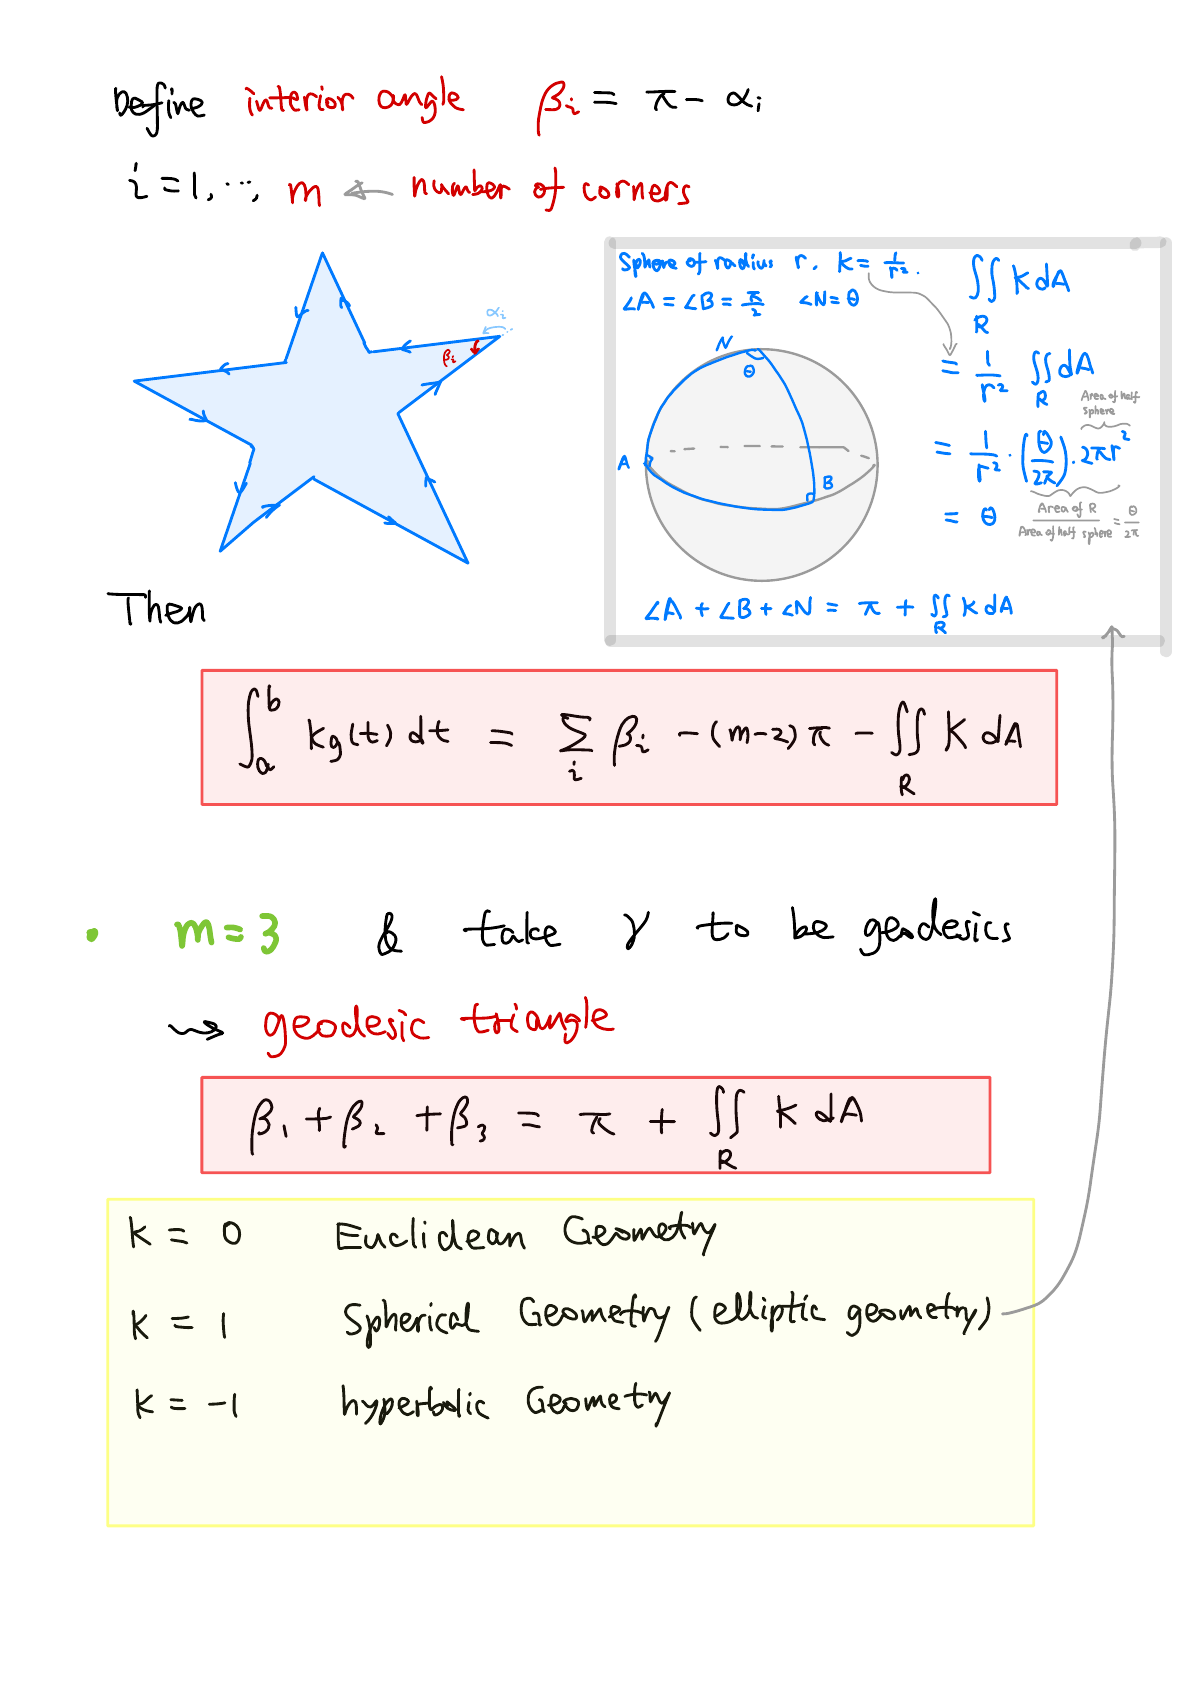 Define interior angle βᵢ = π - αᵢ
i = 1, ..., m ← number of corners
αᵢ
βᵢ
Sphere of radius r. K = 1/r².
∠A = ∠B = π/2 ∠N = θ
N
θ
A
B
∬_R K dA
= 1/r² ∬_R dA
Area of half sphere
= 1/r² · (θ/2π) · 2πr²
= θ
Area of R / Area of half sphere = θ/2π
∠A + ∠B + ∠N = π + ∬_R K dA
Then
∫_a^b kg(t) dt = Σ_i βᵢ - (m-2)π - ∬_R K dA
• m = 3 & take γ to be geodesics
⇝ geodesic triangle
β₁ + β₂ + β₃ = π + ∬_R K dA
K = 0 Euclidean Geometry
K = 1 Spherical Geometry (elliptic geometry)
K = -1 hyperbolic Geometry